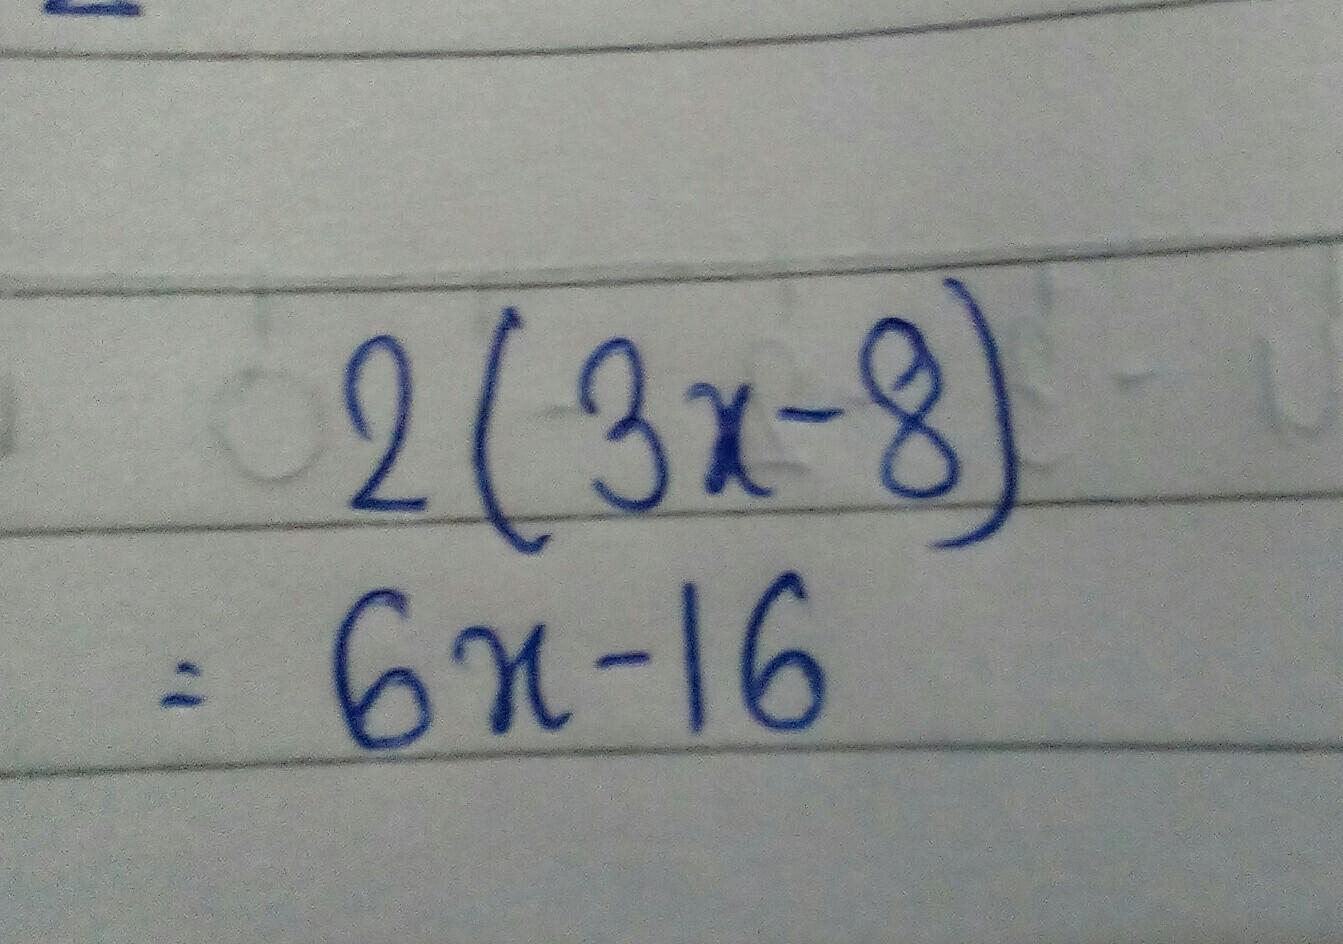 2(3x-8)
= 6x-16